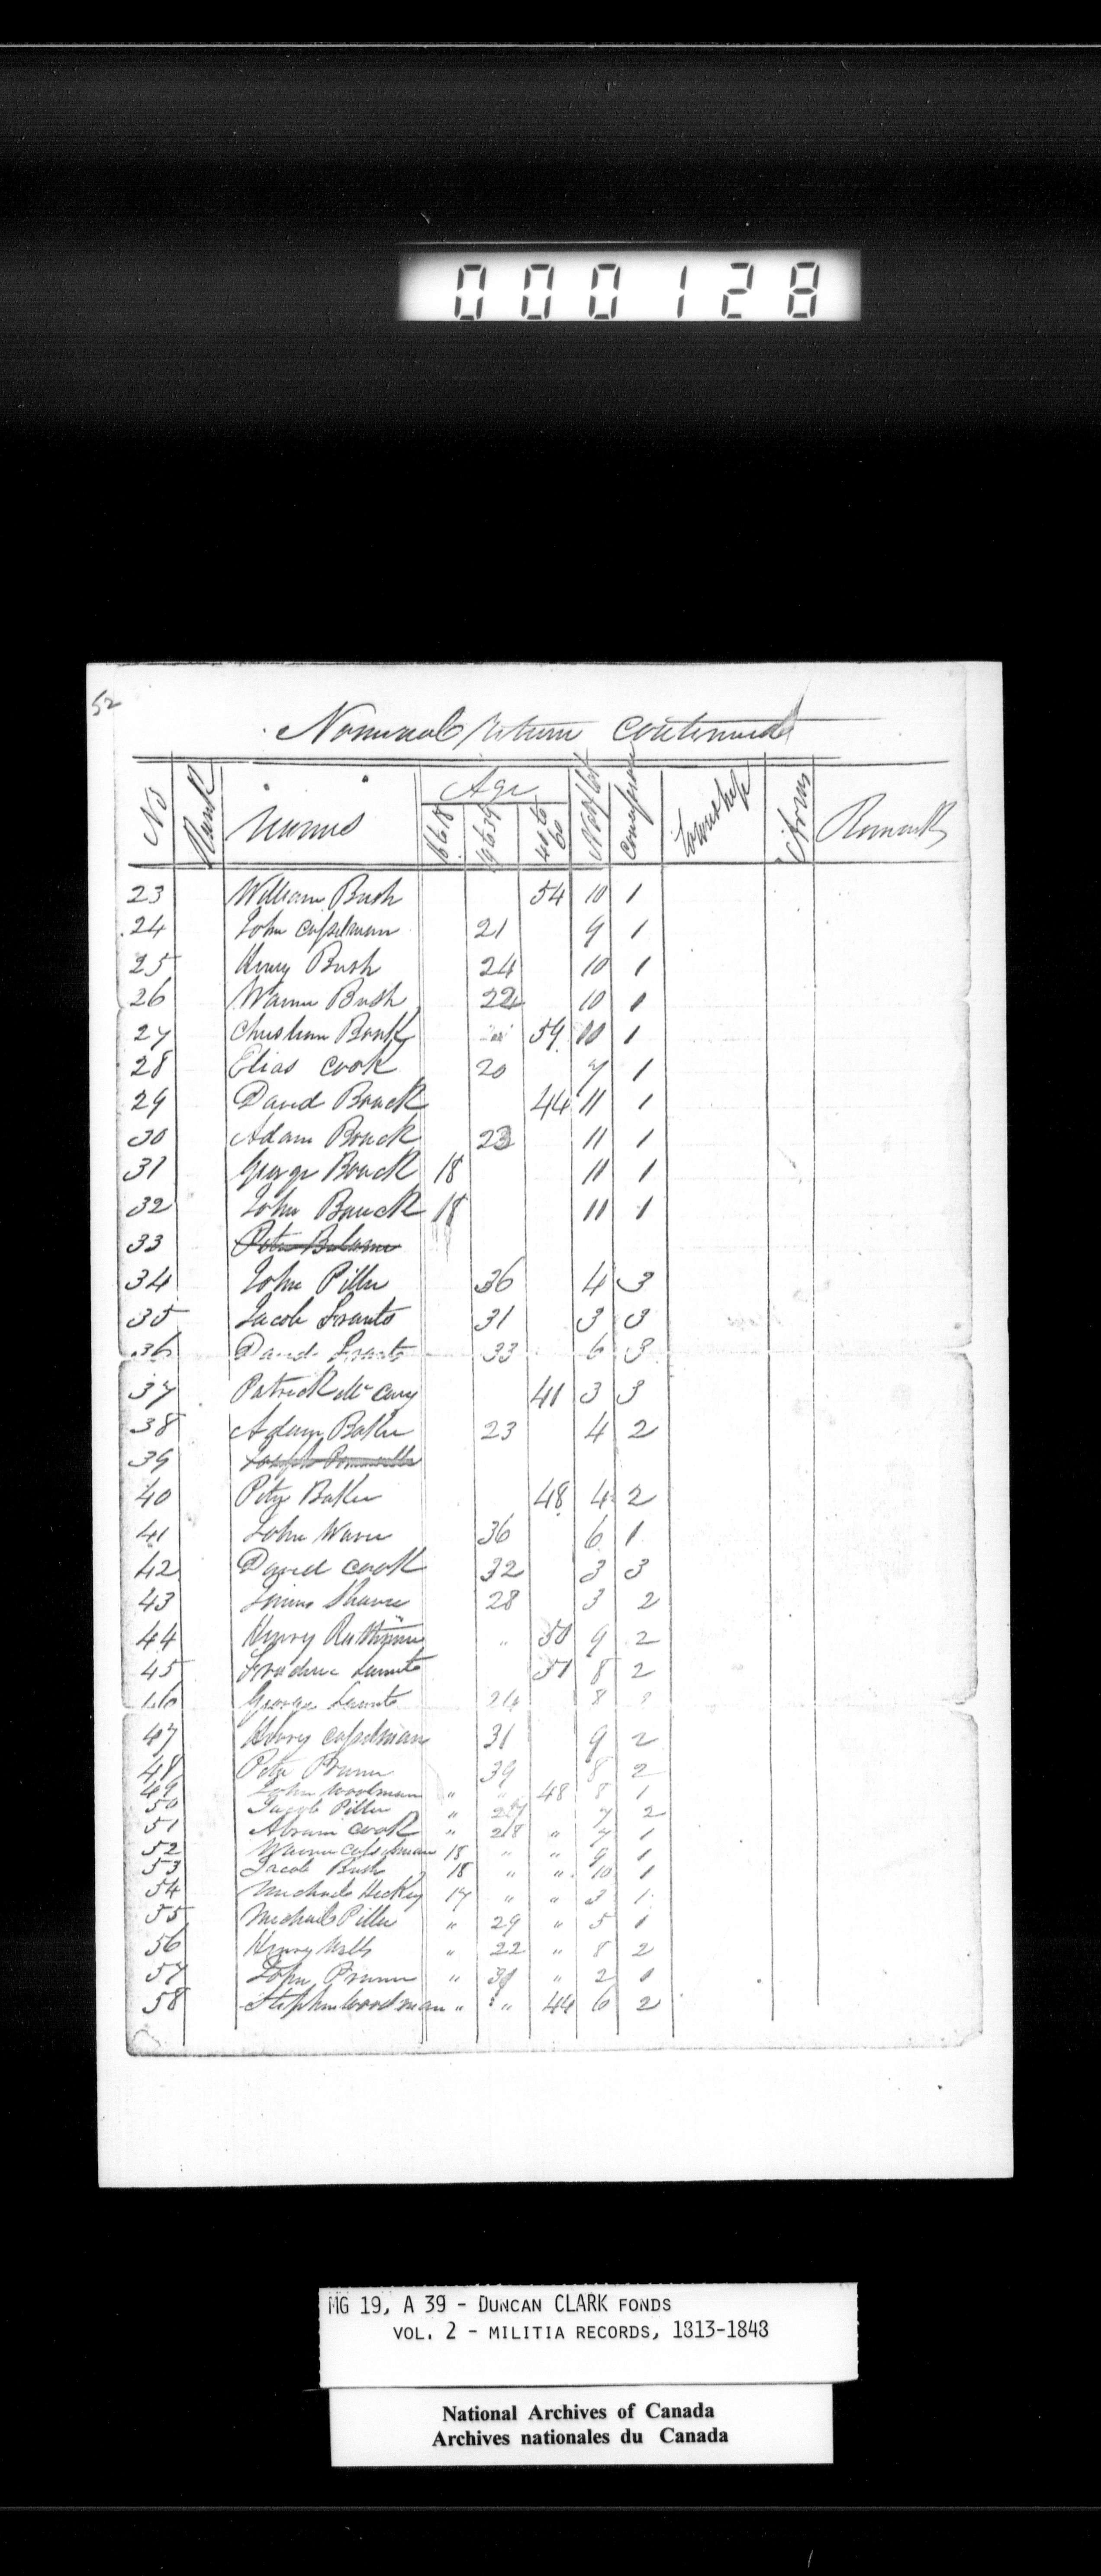 000128
52
Nominal Return Continued
No Rank Names Age 16 to 18 19 to 39 40 to 60 No of Lot Concession Township Arms Remarks
23 William Bush 54 10 1
24 John Casselman 21 9 1
25 Henry Bush 24 10 1
26 Warner Bush 22 10 1
27 Christian Bouck 59 10 1
28 Elias Cook 20 7 1
29 David Bouck 44 11 1
30 Adam Bouck 23 11 1
31 George Bouck 18 11 1
32 John Bouck 18 11 1
33 Peter
34 John Piller 36 4 3
35 Jacob Frants 31 3 3
36 David Frants 33 6 3
37 Patrick Mc Cary 41 3 3
38 Adam Baker 23 4 2
39 Joseph
40 Peter Baker 48 4 2
41 John 36 6 1
42 David Cook 32 3 3
43 28 3 2
44 Henry " 50 9 2
45 51 8 2
46 George 24 8
47 Henry Casselman 31 9 2
48 Peter Prunner 39 8 2
49 John Woodman " " 48 8 1
50 Jacob Piller " 7 2
51 Abram Cook " 28 " 7 1
52 Warner Casselman 18 " " 9 1
53 Jacob Bush 18 " " 10 1
54 Michael Hickey 17 " " 3 1
55 Michail Piller " 29 " 5 1
56 Henry " 22 " 8 2
57 John Prunner " " 2 1
58 Stephen Woodman " " 44 6 2
MG 19, A 39 - DUNCAN CLARK FONDS
VOL. 2 - MILITIA RECORDS, 1813-1848
National Archives of Canada
Archives nationales du Canada